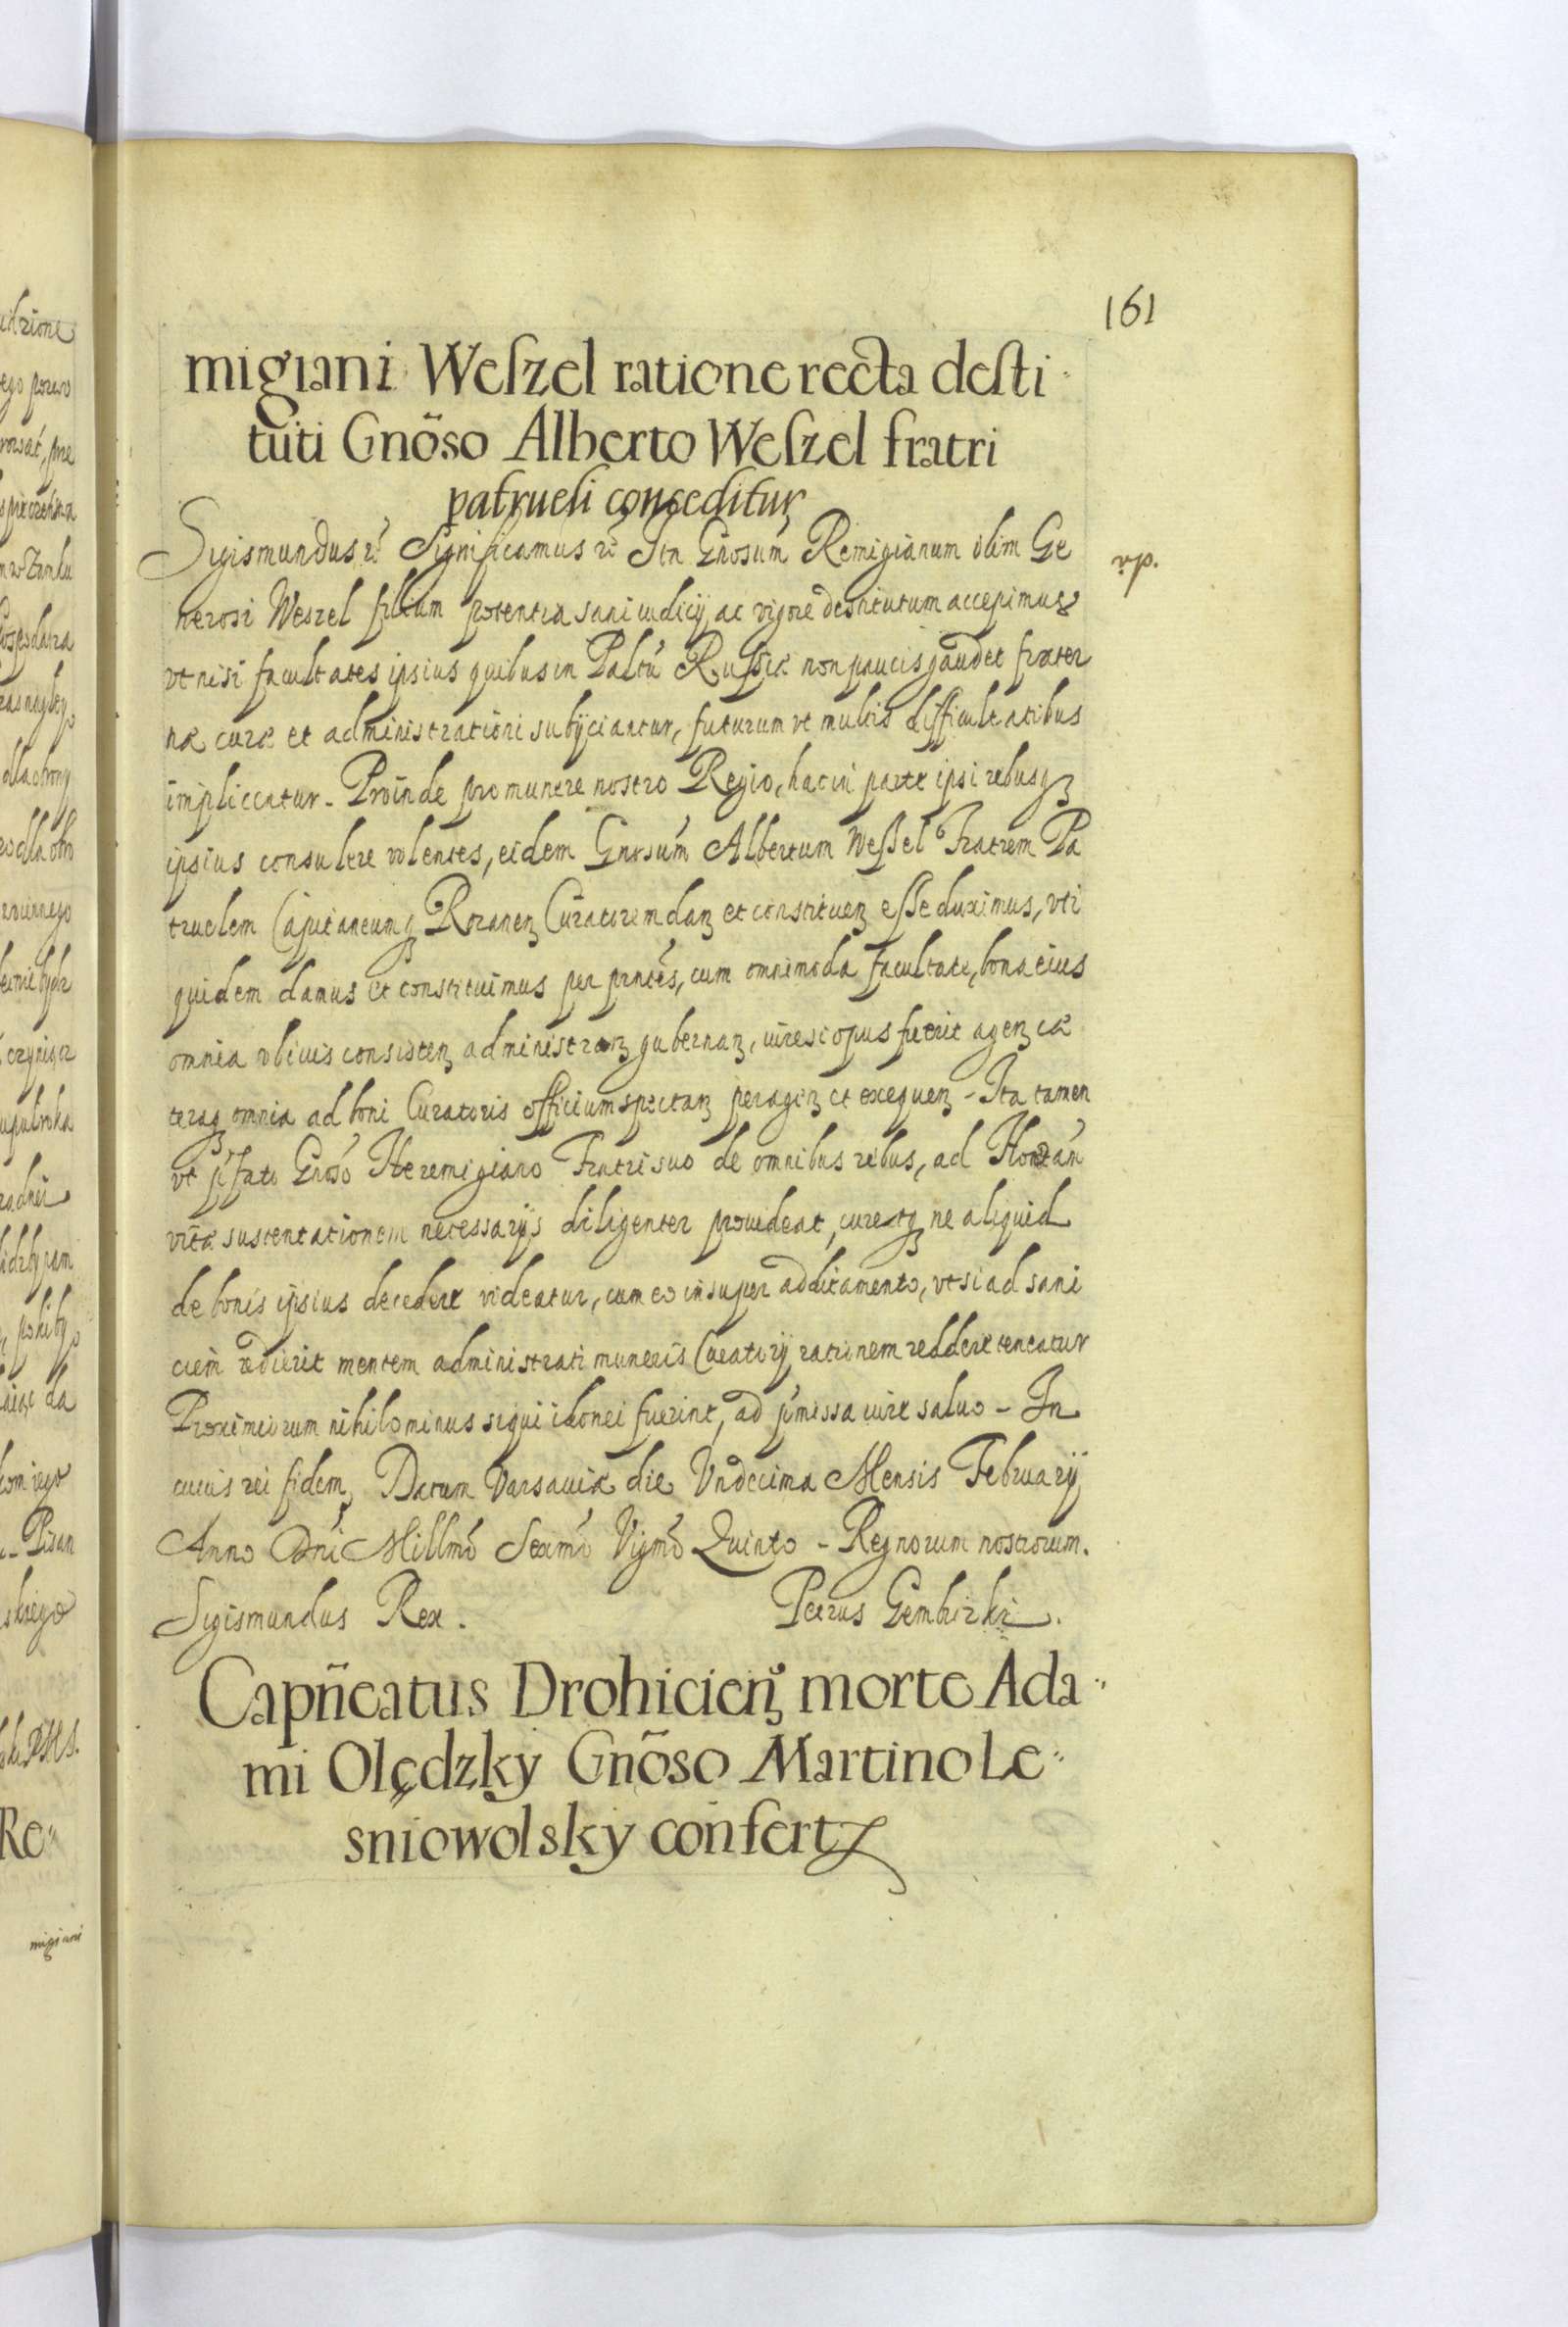 161
migiani Weſzel ratione recta deſti
tuti Gnöso Alberto Weſzel fratri
patrueli conceditur
Sigismundus rē Significamus rē Itn Gnosum Remigianum olim Ge
nerosi Weszel filium potentia sani iudicij ac vigore destitutum accepimus
vt nisi facultates ipsius quibus in Paltū Russiæ non paucis gaudet frater
næ curæ et administrationi subijciantur, futurum vt multis difficultatibus
implicetur. Proinde pro munere nostro Regio, hac in parte ipsi rebusqꝫ
ipsius consulere volentes, eidem Gnosum Albertum Weſſel Fratrem Pa
truelem Capitaneumqꝫ Rozanenꝫ Curatorem danꝫ et constituenꝫ eſſe duximus, vti
quidem damus et constituimus per pntēs, cum omnimoda facultate, bona eius
omnia vbiuis consistenꝫ administranꝫ gubernanꝫ, iure si opus fuerit agenꝫ cæ
teraqꝫ omnia ad boni Curatoris officium spectanꝫ peragenꝫ et exequenꝫ - Ita tamen
vt pfato Gnoso Heremigiano Fratri suo de omnibus rebus, ad
vitæ sustentationem necessarijs diligenter prouideat, curetqꝫ ne aliquid
de bonis ipsius decedere videatur, cum eo insuper additamento, vt si ad sani
ciem redierit mentem administrati muneris Curatorij rationem reddere teneatur
Proximiorum nihilominus siqui idonei fuerint, ad pmissa iure saluo - In
cuius rei fidem, Datum Varsauiæ die Vndecima Mensis February
Anno Dni Millmō Sexmō Vigmō Quinto - Regnorum nostrorum.
Sigismundus Rex. Petrus Gembizki.
Capñeatus Drohicienꝫ morte Ada
mi Olędzky Gnõso Martino Le
sniowolsky confert